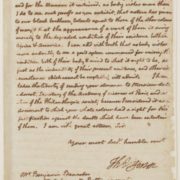 and for the Almanac it contained. no body wishes more than
I do to see such proofs as you exhibit, that nature has given
to our black brethren, talents equal to those of the other colours
of men, & that the appearance of a want of them is owing
merely to the degraded condition of their existence both in
Africa & America. I can add with truth that no body wishes
more ardently to see a good system commenced for raising the con-
dition both of their body & mind to what it ought to be, as
fast as the imbecillity of their present existence, and other
circumstances which cannot be neglected, will admit. I have
taken the liberty of sending your almanac to Monsieur de Con-
dorcet, Secretary of the Academy of sciences at Paris, and
of the Philanthropic society, because I considered it as a
document to which your whole colour had a right for their
justification against the doubts which have been entertained
of them. I am with great esteem, Sir
Your most humble
Th Jefferson
Mr. Benjamin Banneker